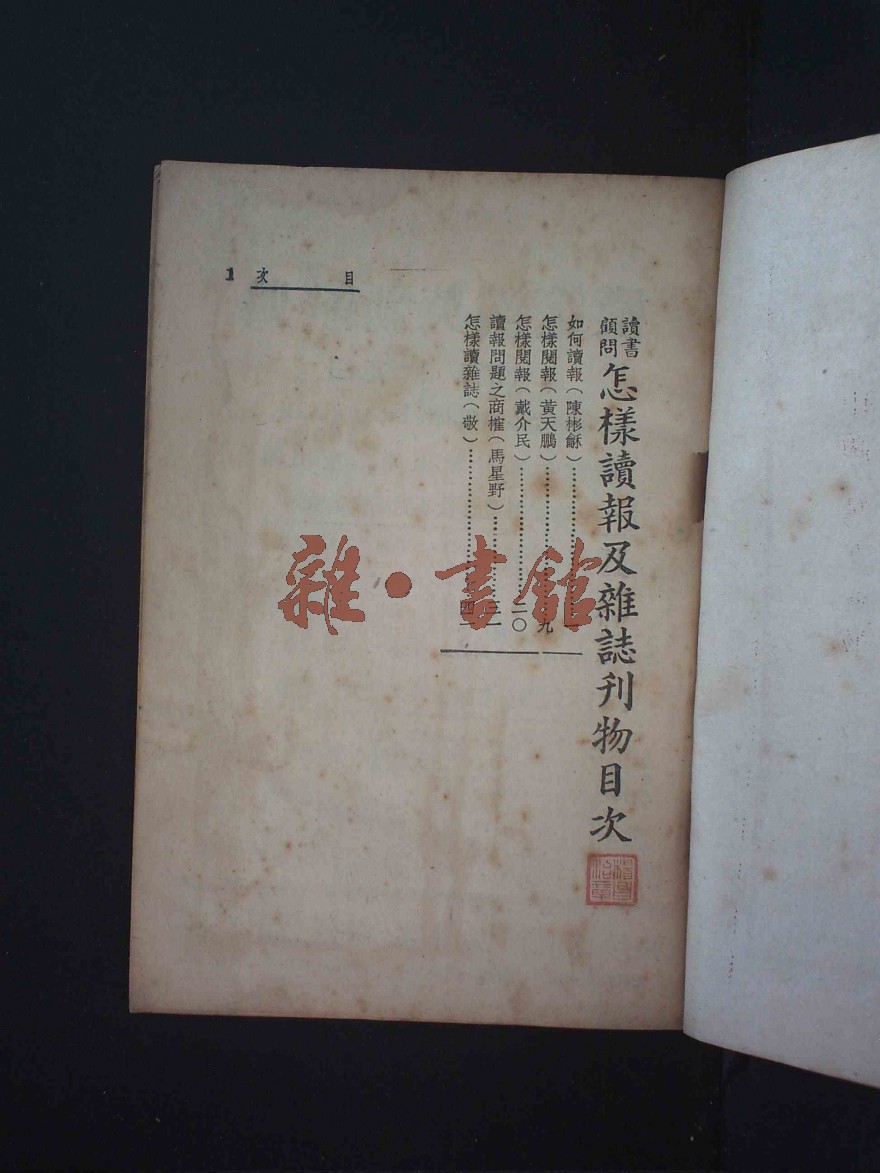 目次 1
讀書顧問 怎樣讀報及雜誌刊物目次
如何讀報（陳彬龢）……一
怎樣閱報（黃天鵬）……九
怎樣閱報（戴介民）……二〇
讀報問題之商榷（馬星野）……三一
怎樣讀雜誌（敬）……四一
雜·書館